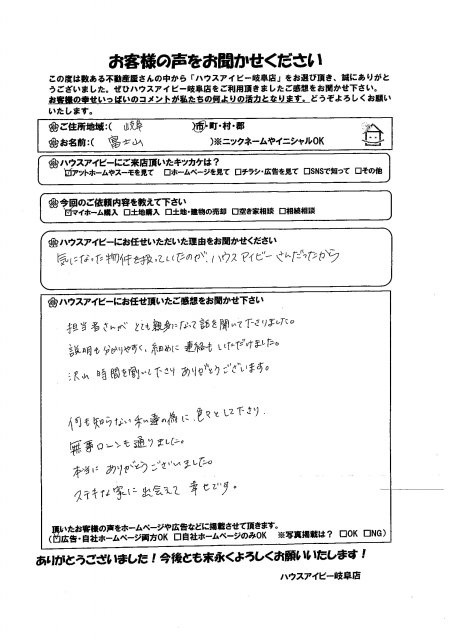 お客様の声をお聞かせください
この度は数ある不動産屋さんの中から「ハウスアイビー岐阜店」をお選び頂き、誠にありがと
うございました。ぜひハウスアイビー岐阜店をご利用頂きましたご感想をお聞かせ下さい。
お客様の幸せいっぱいのコメントが私たちの何よりの活力となります。どうぞよろしくお願い
いたします。
ご住所地域:( 岐阜 )市・町・村・郡
お名前:( 富士山 )※ニックネームやイニシャルOK
ハウスアイビーにご来店頂いたキッカケは?
☑アットホームやスーモを見て □ホームページを見て □チラシ・広告を見て □SNSで知って □その他
今回のご依頼内容を教えて下さい
☑マイホーム購入 □土地購入 □土地・建物の売却 □空き家相談 □相続相談
ハウスアイビーにお任せいただいた理由をお聞かせください
気になった物件を扱っていたのが、ハウスアイビーさんだったから
ハウスアイビーにお任せ頂いたご感想をお聞かせ下さい
担当者さんが とても親身になって話を聞いて下さりました。
説明も分かりやすく、細めに 連絡も していただけました。
沢山 時間を割いて下さり ありがとうございます。
何も知らない私達の為に、色々として下さり、
無事ローンも通りました。
本当に ありがとうございました。
ステキな家に 出会えて 幸せです。
頂いたお客様の声をホームページや広告などに掲載させて頂きます。
(☑広告・自社ホームページ両方OK □自社ホームページのみOK ※写真掲載は? □OK □NG)
ありがとうございました!今後とも末永くよろしくお願いいたします!
ハウスアイビー岐阜店